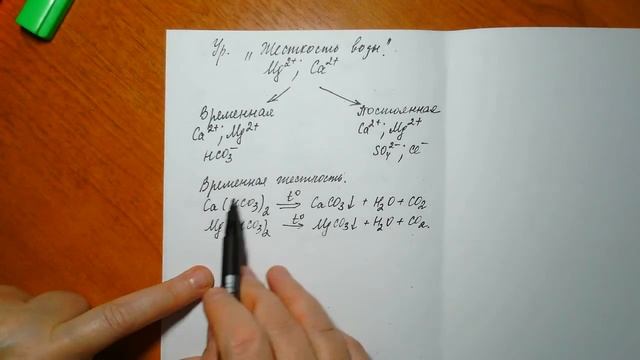 Ур. „Жесткость воды".
Mg²⁺; Ca²⁺
Временная
Ca²⁺; Mg²⁺
HCO₃⁻
Постоянная
Ca²⁺; Mg²⁺
SO₄²⁻; Cl⁻
Временная жесткость.
Ca(HCO₃)₂ ⇒ t° CaCO₃↓ + H₂O + CO₂
Mg(HCO₃)₂ → t° MgCO₃↓ + H₂O + CO₂.